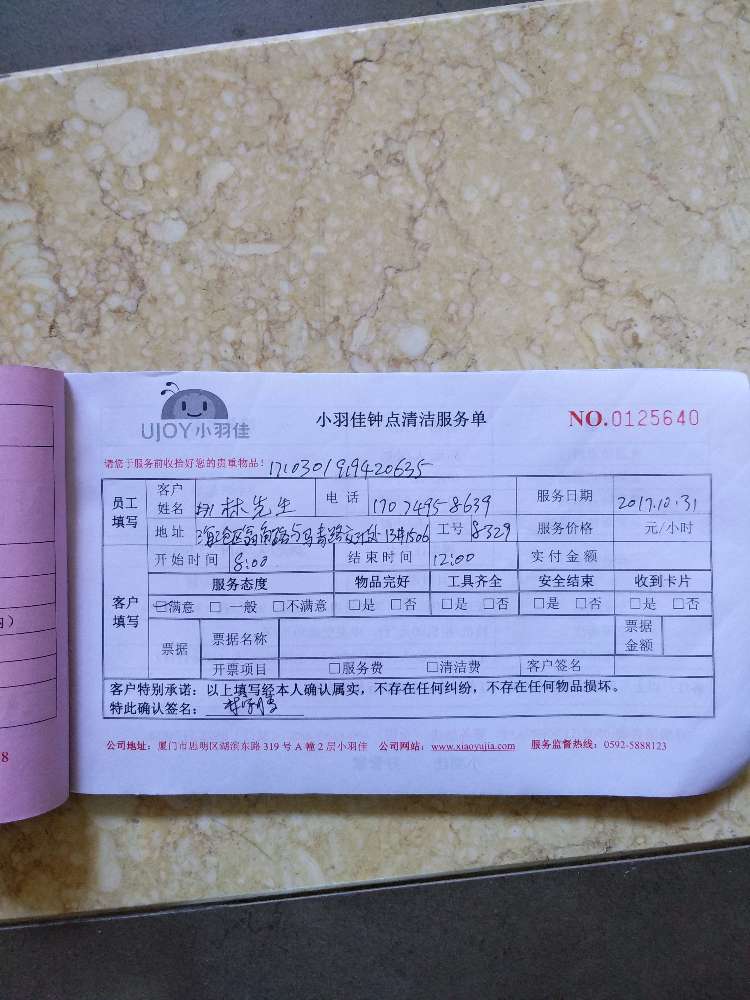 UJOY小羽佳
小羽佳钟点清洁服务单
NO.0125640
请您于服务前收拾好您的贵重物品!
1710301919420635
员工填写 客户姓名 林先生 电话 17074958639 服务日期 2017.10.31
地址 海沧区 与马青路交汇处 1506 工号 8329 服务价格 元/小时
开始时间 8:00 结束时间 12:00 实付金额
客户填写 服务态度 物品完好 工具齐全 安全结束 收到卡片
☑满意 □一般 □不满意 □是 □否 □是 □否 □是 □否 □是 □否
票据 票据名称 票据金额
开票项目 □服务费 □清洁费 客户签名
客户特别承诺:以上填写经本人确认属实,不存在任何纠纷,不存在任何物品损坏。
特此确认签名:
公司地址:厦门市思明区湖滨东路 319 号 A 幢 2 层小羽佳 公司网站:www.xiaoyujia.com 服务监督热线:0592-5888123
8